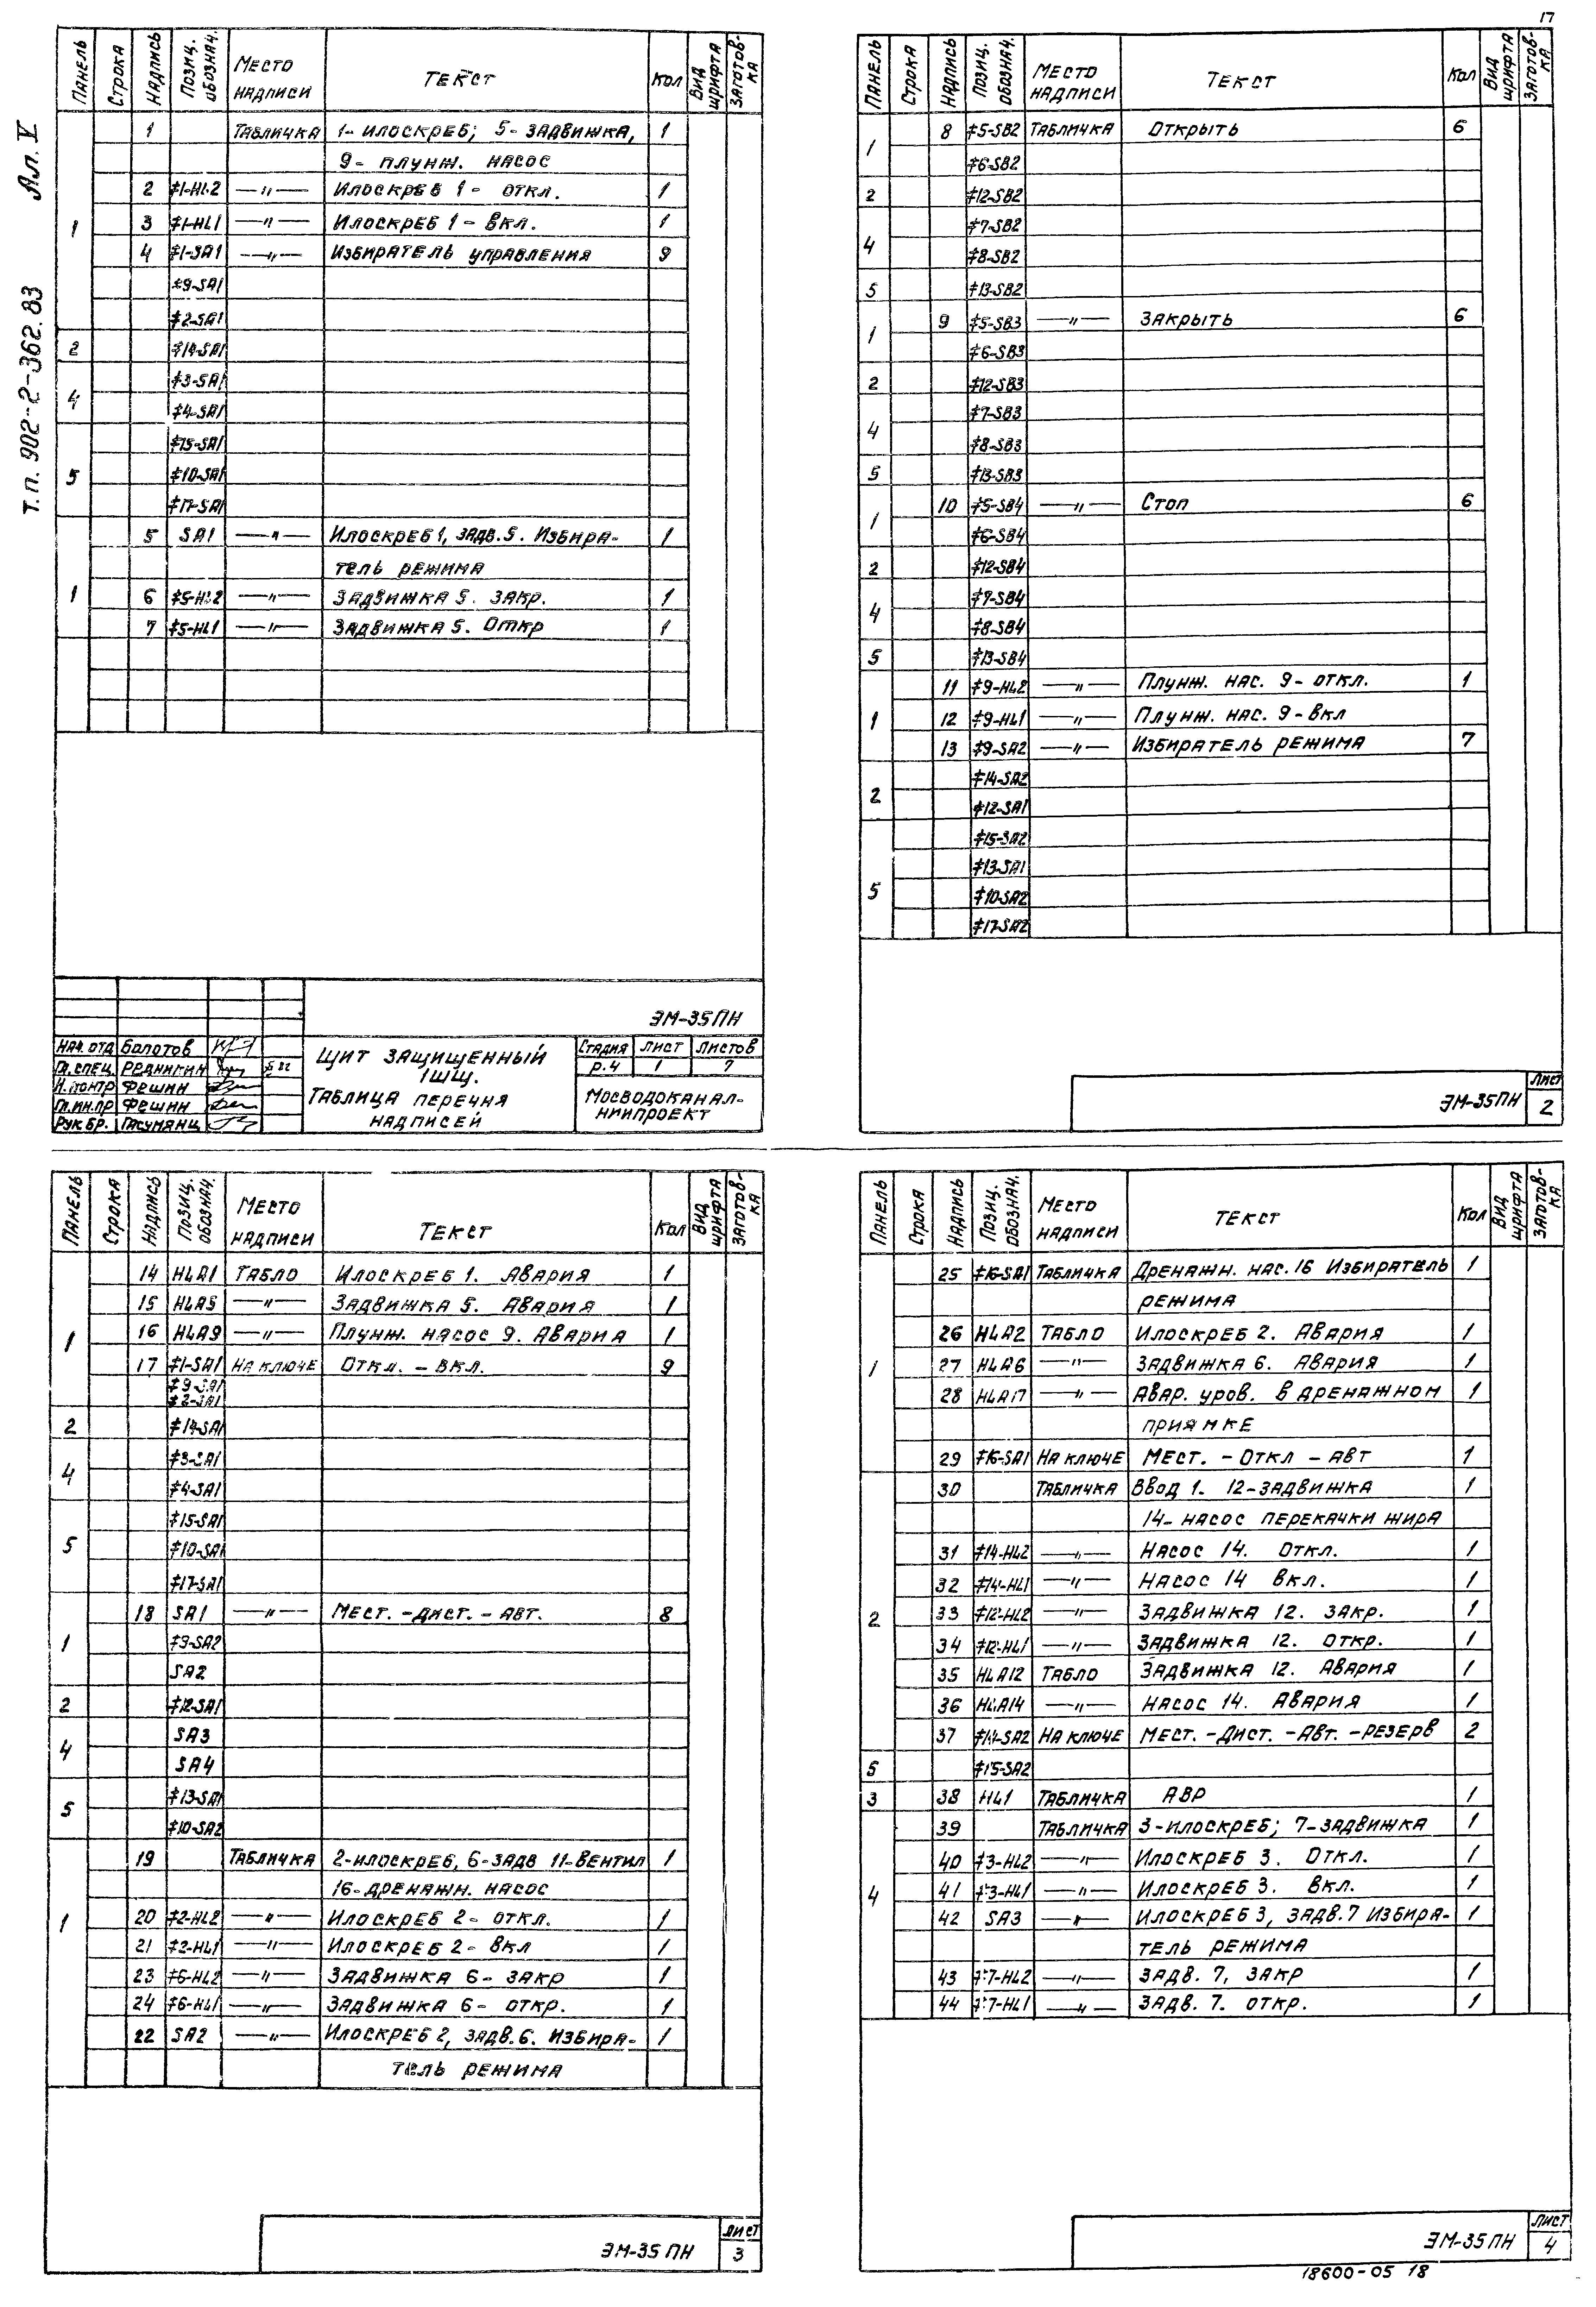 17
Ал. V
т.п. 902-2-362.83
Панель Строка Надпись Позиц. обознач. Место надписи Текст Кол Вид шрифта Заготов-ка
1 Табличка 1- илоскреб; 5- задвижка, 1
9- плунж. насос
2 ‡1-HL2 —〃— Илоскреб 1- откл. 1
1 3 ‡1-HL1 —〃— Илоскреб 1- вкл. 1
4 ‡1-SA1 —〃— Избиратель управления 9
‡9-SA1
‡2-SA1
2 ‡14-SA1
4 ‡3-SA1
‡4-SA1
‡15-SA1
5 ‡10-SA1
‡17-SA1
5 SA1 —〃— Илоскреб 1, задв. 5. Избира-
тель режима 1
1 6 ‡5-HL2 —〃— Задвижка 5. закр. 1
7 ‡5-HL1 —〃— Задвижка 5. Откр 1
ЭМ-35ПН
Нач. отд Болотов
Гл. спец. Реднигин
Н. контр Фешин
Гл. ин. пр Фешин
Рук. бр. Гасумянц
Щит защищенный
1ЩЩ.
Таблица перечня
надписей
Стадия Лист Листов
Р.Ч 1 7
Мосводоканал-
ниипроект
Панель Строка Надпись Позиц. обознач. Место надписи Текст Кол Вид шрифта Заготов-ка
1 8 ‡5-SB2 Табличка Открыть 6
‡6-SB2
2 ‡12-SB2
4 ‡7-SB2
‡8-SB2
5 ‡13-SB2
1 9 ‡5-SB3 —〃— Закрыть 6
‡6-SB3
2 ‡12-SB3
4 ‡7-SB3
‡8-SB3
5 ‡13-SB3
1 10 ‡5-SB4 —〃— Стоп 6
‡6-SB4
2 ‡12-SB4
4 ‡7-SB4
‡8-SB4
5 ‡13-SB4
11 ‡9-HL2 —〃— Плунж. нас. 9- откл. 1
1 12 ‡9-HL1 —〃— Плунж. нас. 9- вкл
13 ‡9-SA2 —〃— Избиратель режима 7
2 ‡14-SA2
‡12-SA1
‡15-SA2
5 ‡13-SA1
‡10-SA2
‡17-SA2
ЭМ-35ПН Лист 2
Панель Строка Надпись Позиц. обознач. Место надписи Текст Кол Вид шрифта Заготов-ка
14 HLA1 Табло Илоскреб 1. Авария 1
15 HLA5 —〃— Задвижка 5. Авария 1
1 16 HLA9 —〃— Плунж. насос 9. Авария 1
17 ‡1-SA1 На ключе Откл. - вкл. 9
‡9-SA1
‡2-SA1
2 ‡14-SA1
4 ‡3-SA1
‡4-SA1
‡15-SA1
5 ‡10-SA1
‡17-SA1
18 SA1 —〃— Мест. - дист. - авт. 8
1 ‡9-SA2
SA2
2 ‡12-SA1
4 SA3
SA4
5 ‡13-SA1
‡10-SA2
19 Табличка 2-илоскреб, 6-задв 11-вентил 1
16- дренажн. насос
1 20 ‡2-HL2 —〃— Илоскреб 2- откл. 1
21 ‡2-HL1 —〃— Илоскреб 2- вкл 1
23 ‡6-HL2 —〃— Задвижка 6- закр 1
24 ‡6-HL1 —〃— Задвижка 6- откр. 1
22 SA2 —〃— Илоскреб 2, задв. 6. Избира- 1
тель режима
ЭМ-35 ПН Лист 3
Панель Строка Надпись Позиц. обознач. Место надписи Текст Кол Вид шрифта Заготов-ка
25 ‡16-SA1 Табличка Дренажн. нас. 16 Избиратель 1
режима
26 HLA2 Табло Илоскреб 2. Авария 1
1 27 HLA6 —〃— Задвижка 6. Авария 1
28 HLA17 —〃— Авар. уров. в дренажном 1
приямке
29 ‡16-SA1 На ключе Мест. - Откл - авт 1
30 Табличка Ввод 1. 12-задвижка 1
14- насос перекачки жира
31 ‡14-HL2 —〃— Насос 14. Откл. 1
32 ‡14-HL1 —〃— Насос 14 вкл. 1
2 33 ‡12-HL2 —〃— Задвижка 12. закр. 1
34 ‡12-HL1 —〃— Задвижка 12. откр. 1
35 HLA12 Табло Задвижка 12. Авария 1
36 HLA14 —〃— Насос 14. Авария 1
37 ‡14-SA2 На ключе Мест. - Дист. - Авт. - резерв 2
5 ‡15-SA2
3 38 HL1 Табличка АВР 1
39 Табличка 3-илоскреб; 7-задвижка 1
40 ‡3-HL2 —〃— Илоскреб 3. Откл. 1
4 41 ‡3-HL1 —〃— Илоскреб 3. вкл. 1
42 SA3 —〃— Илоскреб 3, задв. 7 Избира- 1
тель режима
43 ‡7-HL2 —〃— Задв. 7, закр 1
44 ‡7-HL1 —〃— Задв. 7. откр. 1
ЭМ-35 ПН Лист 4
18600-05 18